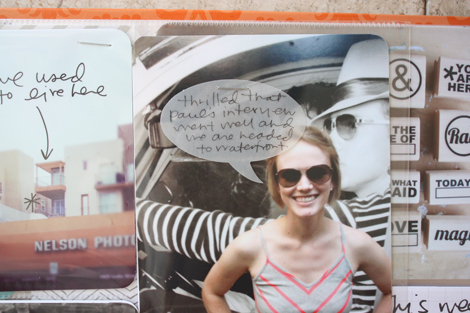 we used
to live here
NELSON PHOTO
thrilled that
paul's interview
went well and
we are headed
to waterfront.
&
*YOU
ARE
HERE
THE
E OF
Ra
WHAT
AID
TODAY
OVE
magi
this we